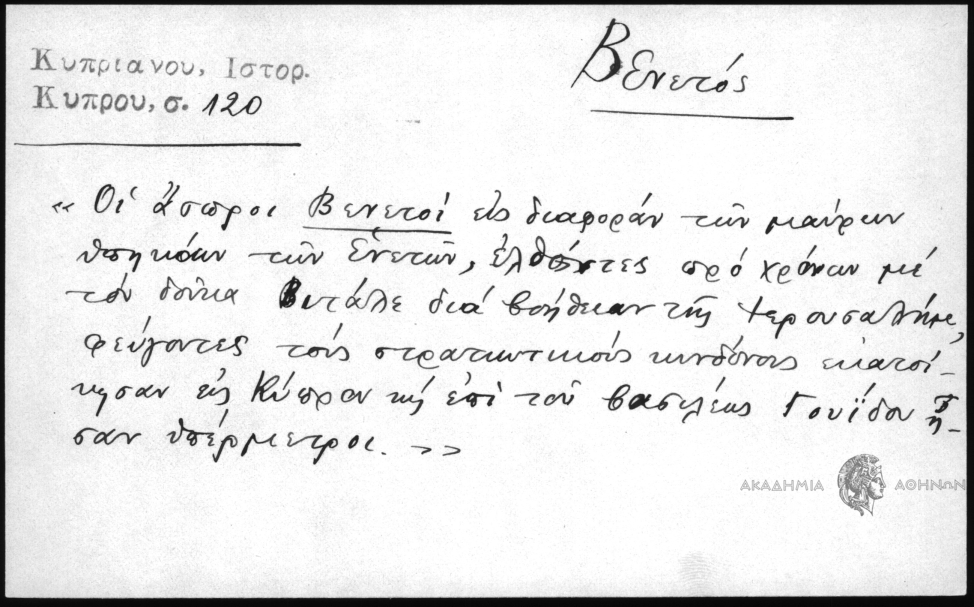 Κυπριανου, Ιστορ.
Κυπρου, σ. 120
Βενετός
« Οἱ ἄσπροι Βενετοί εἰς διαφοράν τῶν μαύρων
ὑπηκόων τῶν Ἑνετῶν, ἐλθόντες πρό χρόνων μέ
τόν δοῦκα Βιτάλε διά βοήθειαν τῆς Ἱερουσαλήμ,
φεύγοντες τούς στρατιωτικούς κινδύνους εκατοί-
κησαν εἰς Κύπρον κῄ ἐπί τοῦ βασιλέως Γουΐδου ἦ-
σαν ὑπέρμετροι. »
ΑΚΑΔΗΜΙΑ ΑΘΗΝΩΝ